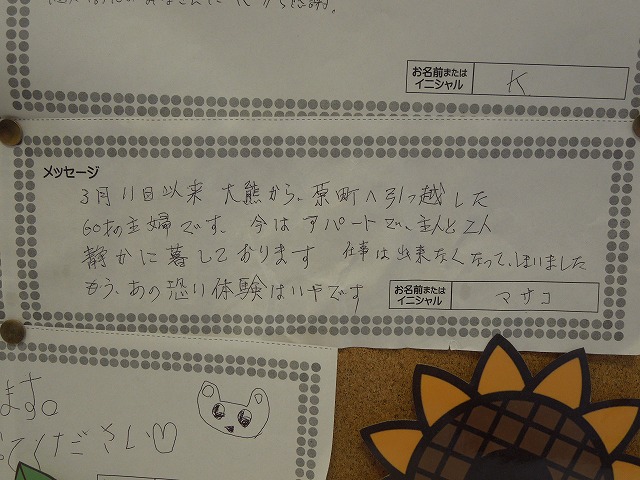 から感謝。
お名前または
イニシャル
K
メッセージ
3月11日以来 大熊から、原町へ引っ越した
60才の主婦です。今は アパートで、主人と2人
静かに暮しております 仕事は出来なくなって、しまいました
もう、あの恐い体験はいやです
お名前または
イニシャル
マサコ
ます。
てください♡